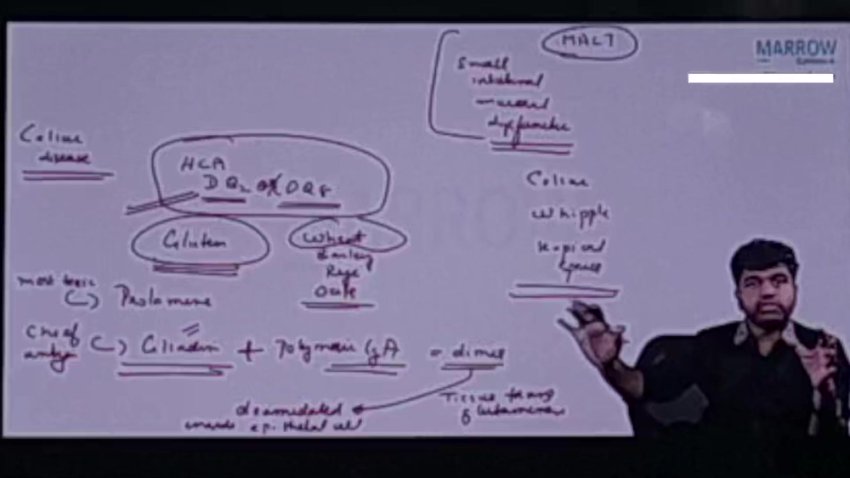 MALT
MARROW
Small
intestinal
mucosal
dysfunction
Celiac
disease
HLA
DQ2 or DQ8
Gluten
Wheat
Barley
Rye
Oats
Celiac
Whipple
Tropical
Sprue
most toxic
Prolamine
Chief
antigen
Gliadin + Polymeric IgA = dimer
deamidated
epithelial cell
Tissue